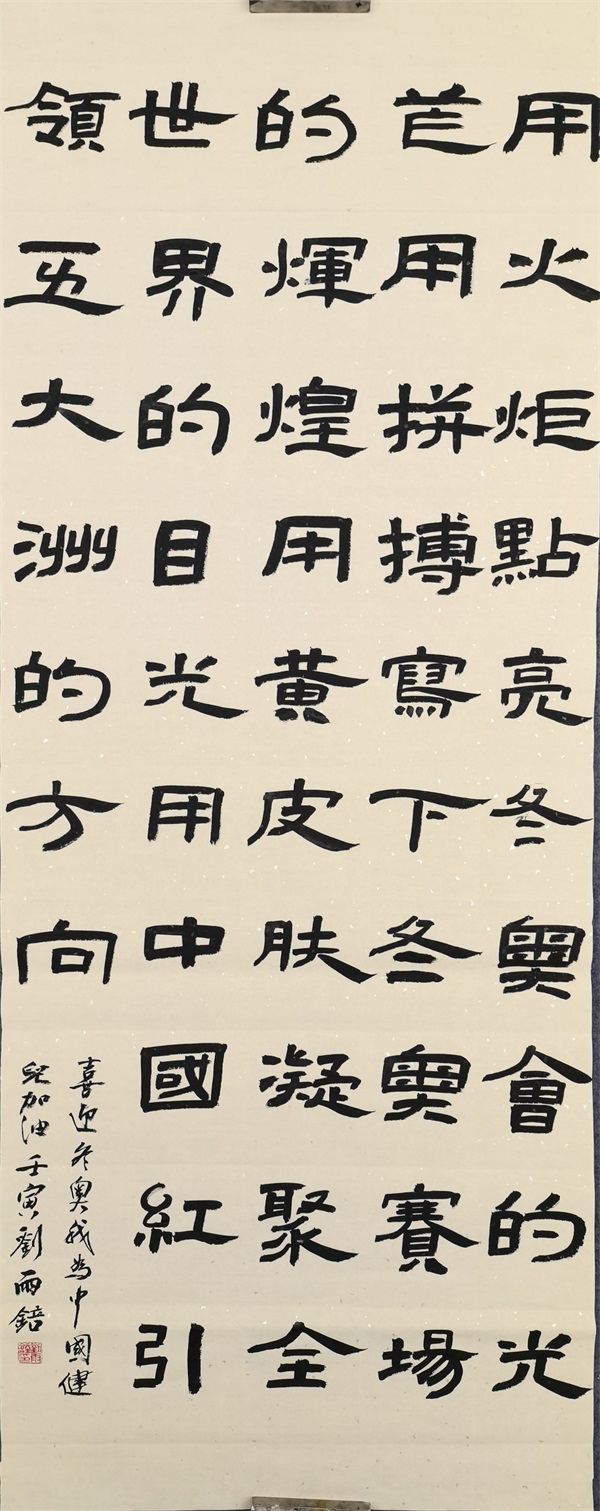 用火炬點亮冬奧會的光
芒用拼搏寫下冬奧賽場
的煇煌用黃皮肤凝聚全
世界的目光用中國紅引
領五大洲的方向
喜迎冬奧我為中國健
兒加油壬寅劉雨錇